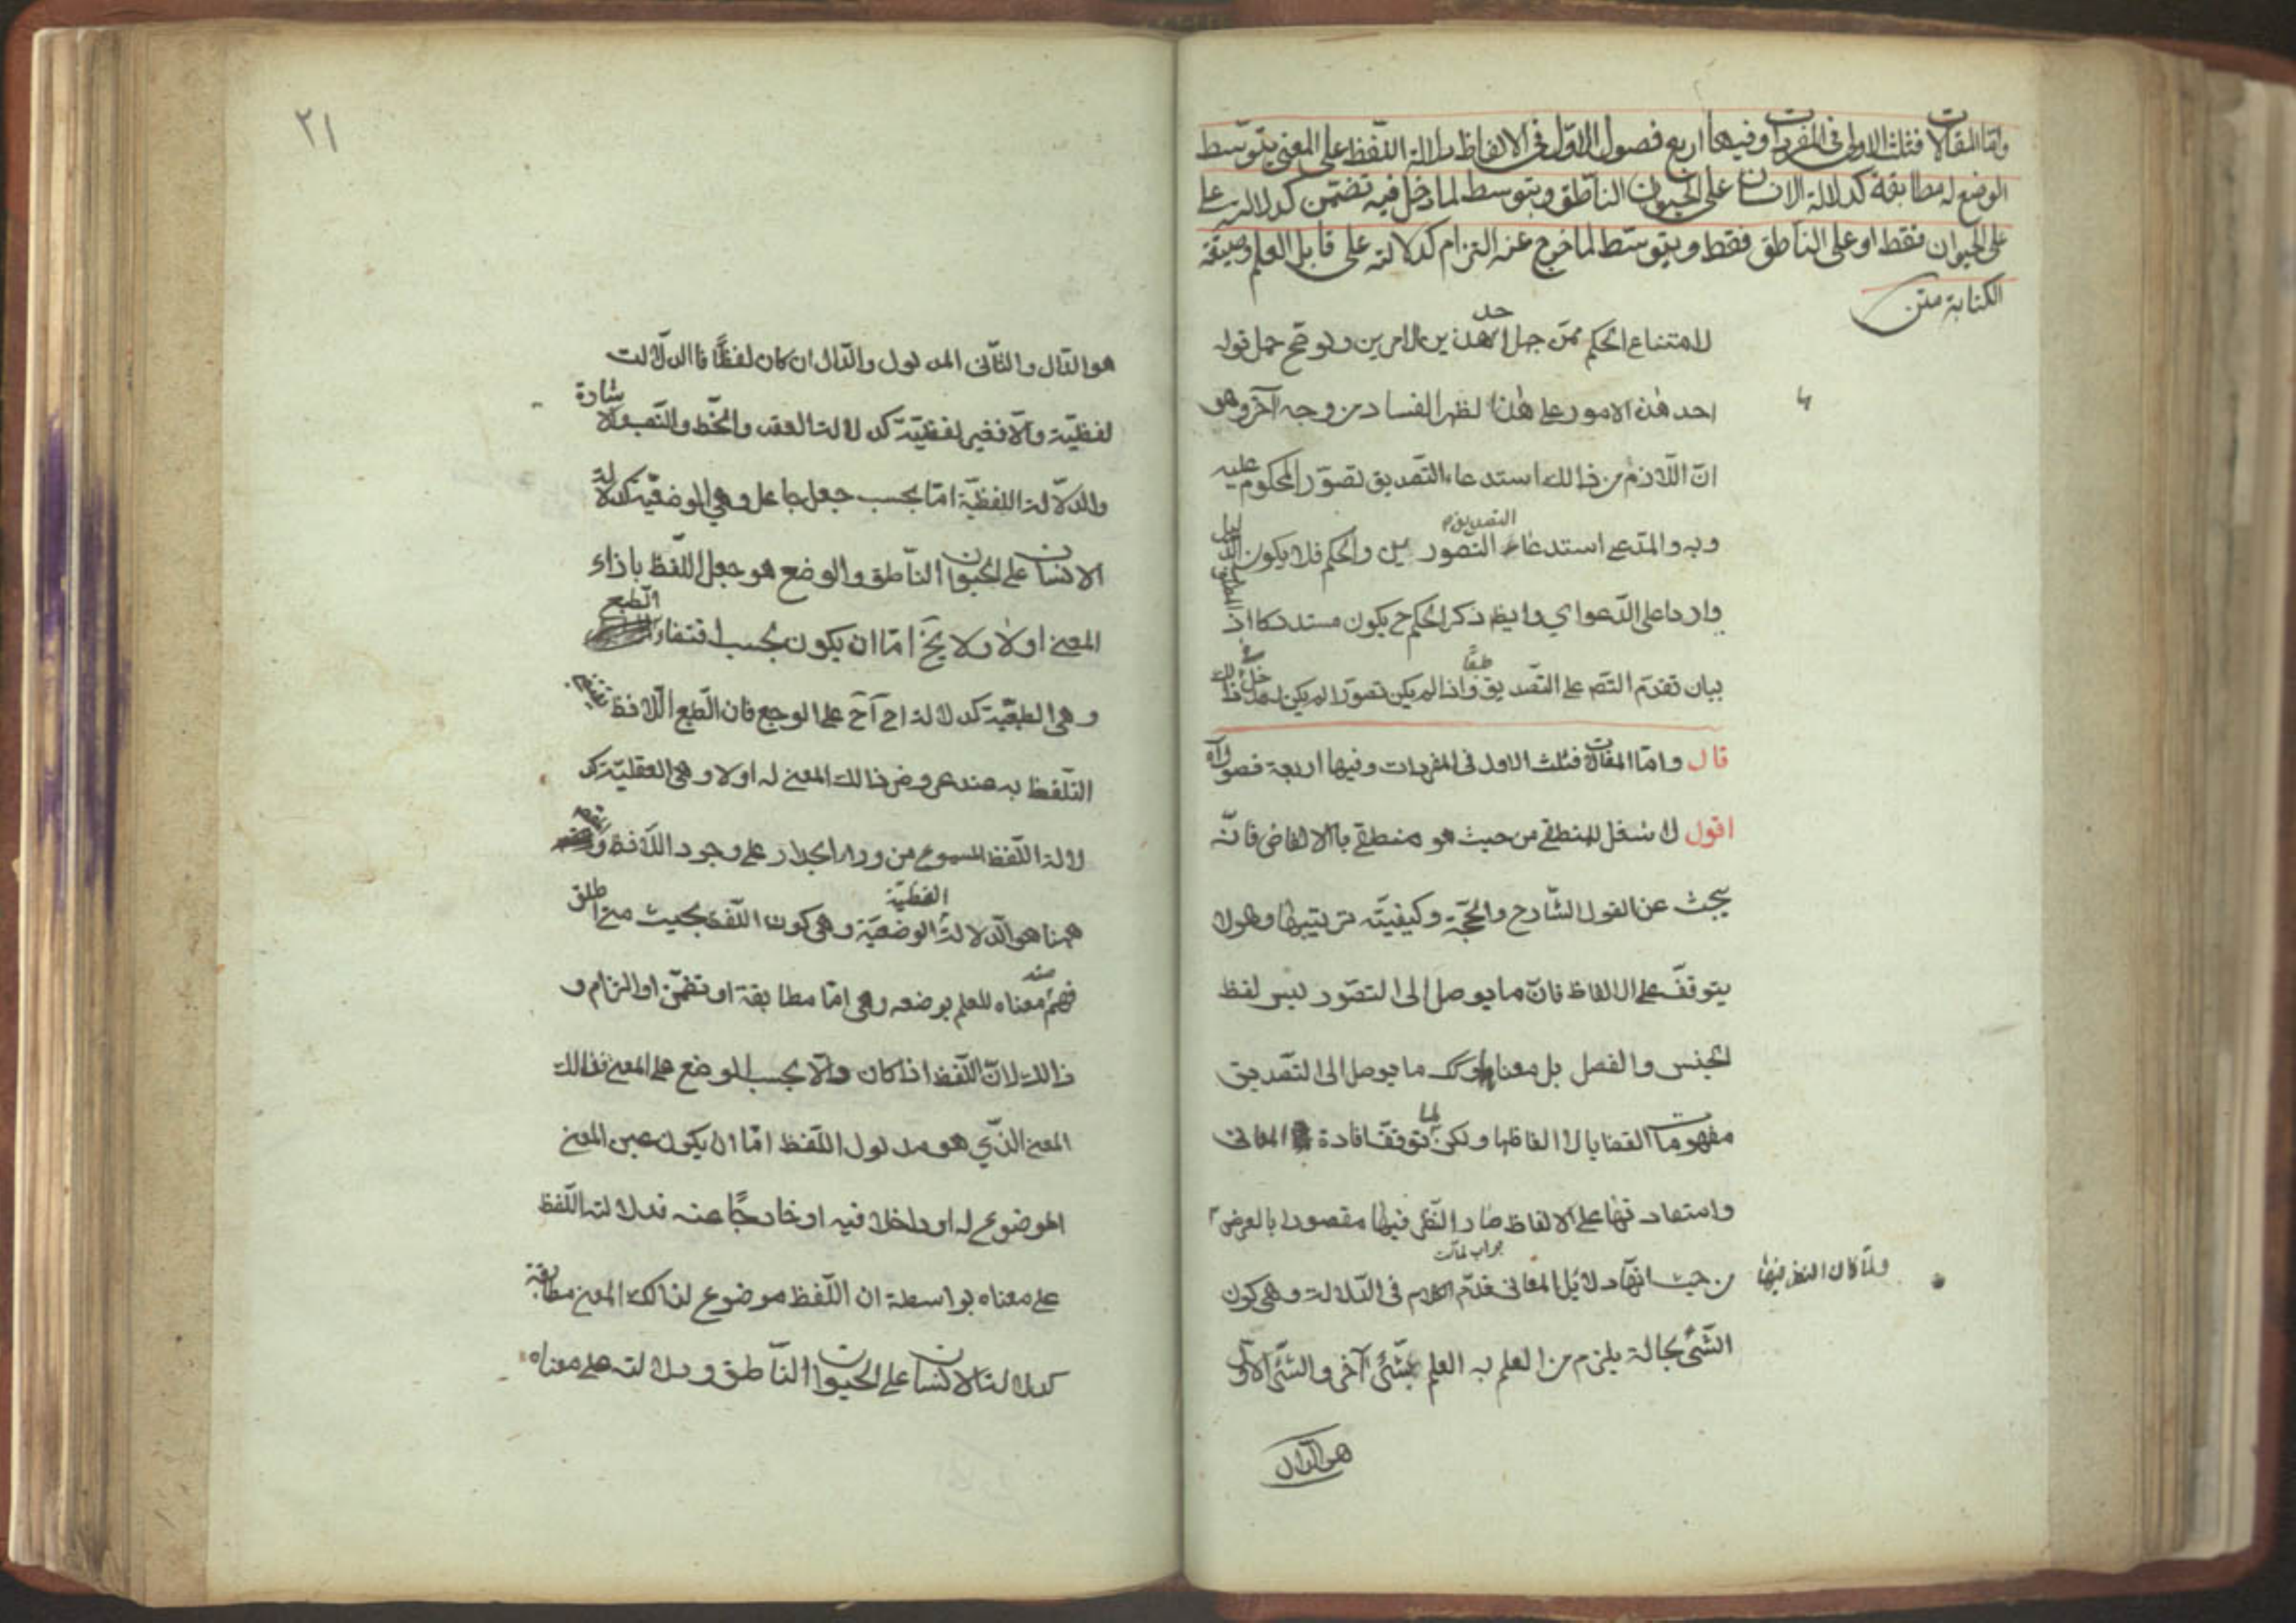 واما المقالات فثلث الاولى فى المفردات وفيها اربع فصول الاول فى الالفاظ دلالة اللفظ على المعنى بتوسط
الوضع له مطابقة كدلالة الانسان على الحيوان الناطق وبتوسط لما دخل فيه تضمن كدلالته على
على الحيوان فقط او على الناطق فقط وبتوسط لما خرج عنه التزام كدلالته على قابل العلم وصنعة
الكتابة متن
لامتناع الحكم ممن جهل احد هذين الامرين
احد هذه الامور على هذا لظهر الفساد من وجه آخر وهو
ان اللازم من ذالك استدعاء التصديق تصور المحكوم عليه
وبه والمدعى استدعاء التصديق التصورين والحكم فلا يكون الدليل
واردا على الدعواي وايضا ذكر الحكم ح يكون مستدركا اذ
بيان تقدم التصور على التصديق طبعا واذا لم يكن تصورا لم يكن له دخل فى ذالك
قال واما المقالات فثلث الاول فى المفردات وفيها اربعة فصول اه
اقول لا شغل للمنطقى من حيث هو منطقى بالالفاض فانه
يبحث عن القول الشارح والحجة وكيفيته ترتيبها وهو لا
يتوقف على الالفاظ فان ما يوصل الى التصور ليس لفظ
الجنس والفصل بل معناهما وكك ما يوصل الى التصديق
مفهومات القضايا لا الفاظها ولكن لما توقف افادة المعانى
واستفادتها على الالفاظ صار النظر فيها مقصودا بالعرض
ولما كان النظر فيها
من حيث انها دلائل المعانى قدم الكلام فى الدلالة وهى كون
جواب لما
الشئ بحالة يلزم من العلم به العلم بشئ آخر والشئ الاول
هو الدال
٢١
هو الدال والثانى المدلول والدال ان كان لفظا فاالدلالت
لفظية والا فغير لفظية كدلالت العقد والخط والنصب والاشارة
والدلالة اللفظية اما بحسب جعل جاعل وهى الوضعية كدلالة
الانسان على الحيوان الناطق والوضع هو جعل اللفظ بازاء
المعنى اولا ولا يخ اما ان يكون بحسب اقتضاء الطبع
وهى الطبعية كدلالة اح آح على الوجع فان الطبع اللافظ يقتضى
التلفظ به عند عروض ذالك المعنى له اولا وهى العقلية كد
لالة اللفظ المسموع من وراء الجدار على وجود اللافظ والمقصود
ههنا هو الدلالة اللفظية الوضعية وهى كون اللفظ بحيث متى اطلق
فهم منه معناه للعلم بوضعه وهى اما مطابقة او تضمن او التزام و
ذالك لان اللفظ اذا كان دالا بحسب الوضع على المعنى فذالك
المعنى الذي هو مدلول اللفظ اما ان يكون عين المعنى
الموضوع له او داخلا فيه او خارجا عنه فدلالت اللفظ
على معناه بواسطة ان اللفظ موضوع لذالك المعنى مطابقة
كدلالت الانسان على الحيوان الناطق ودلالته على معناه